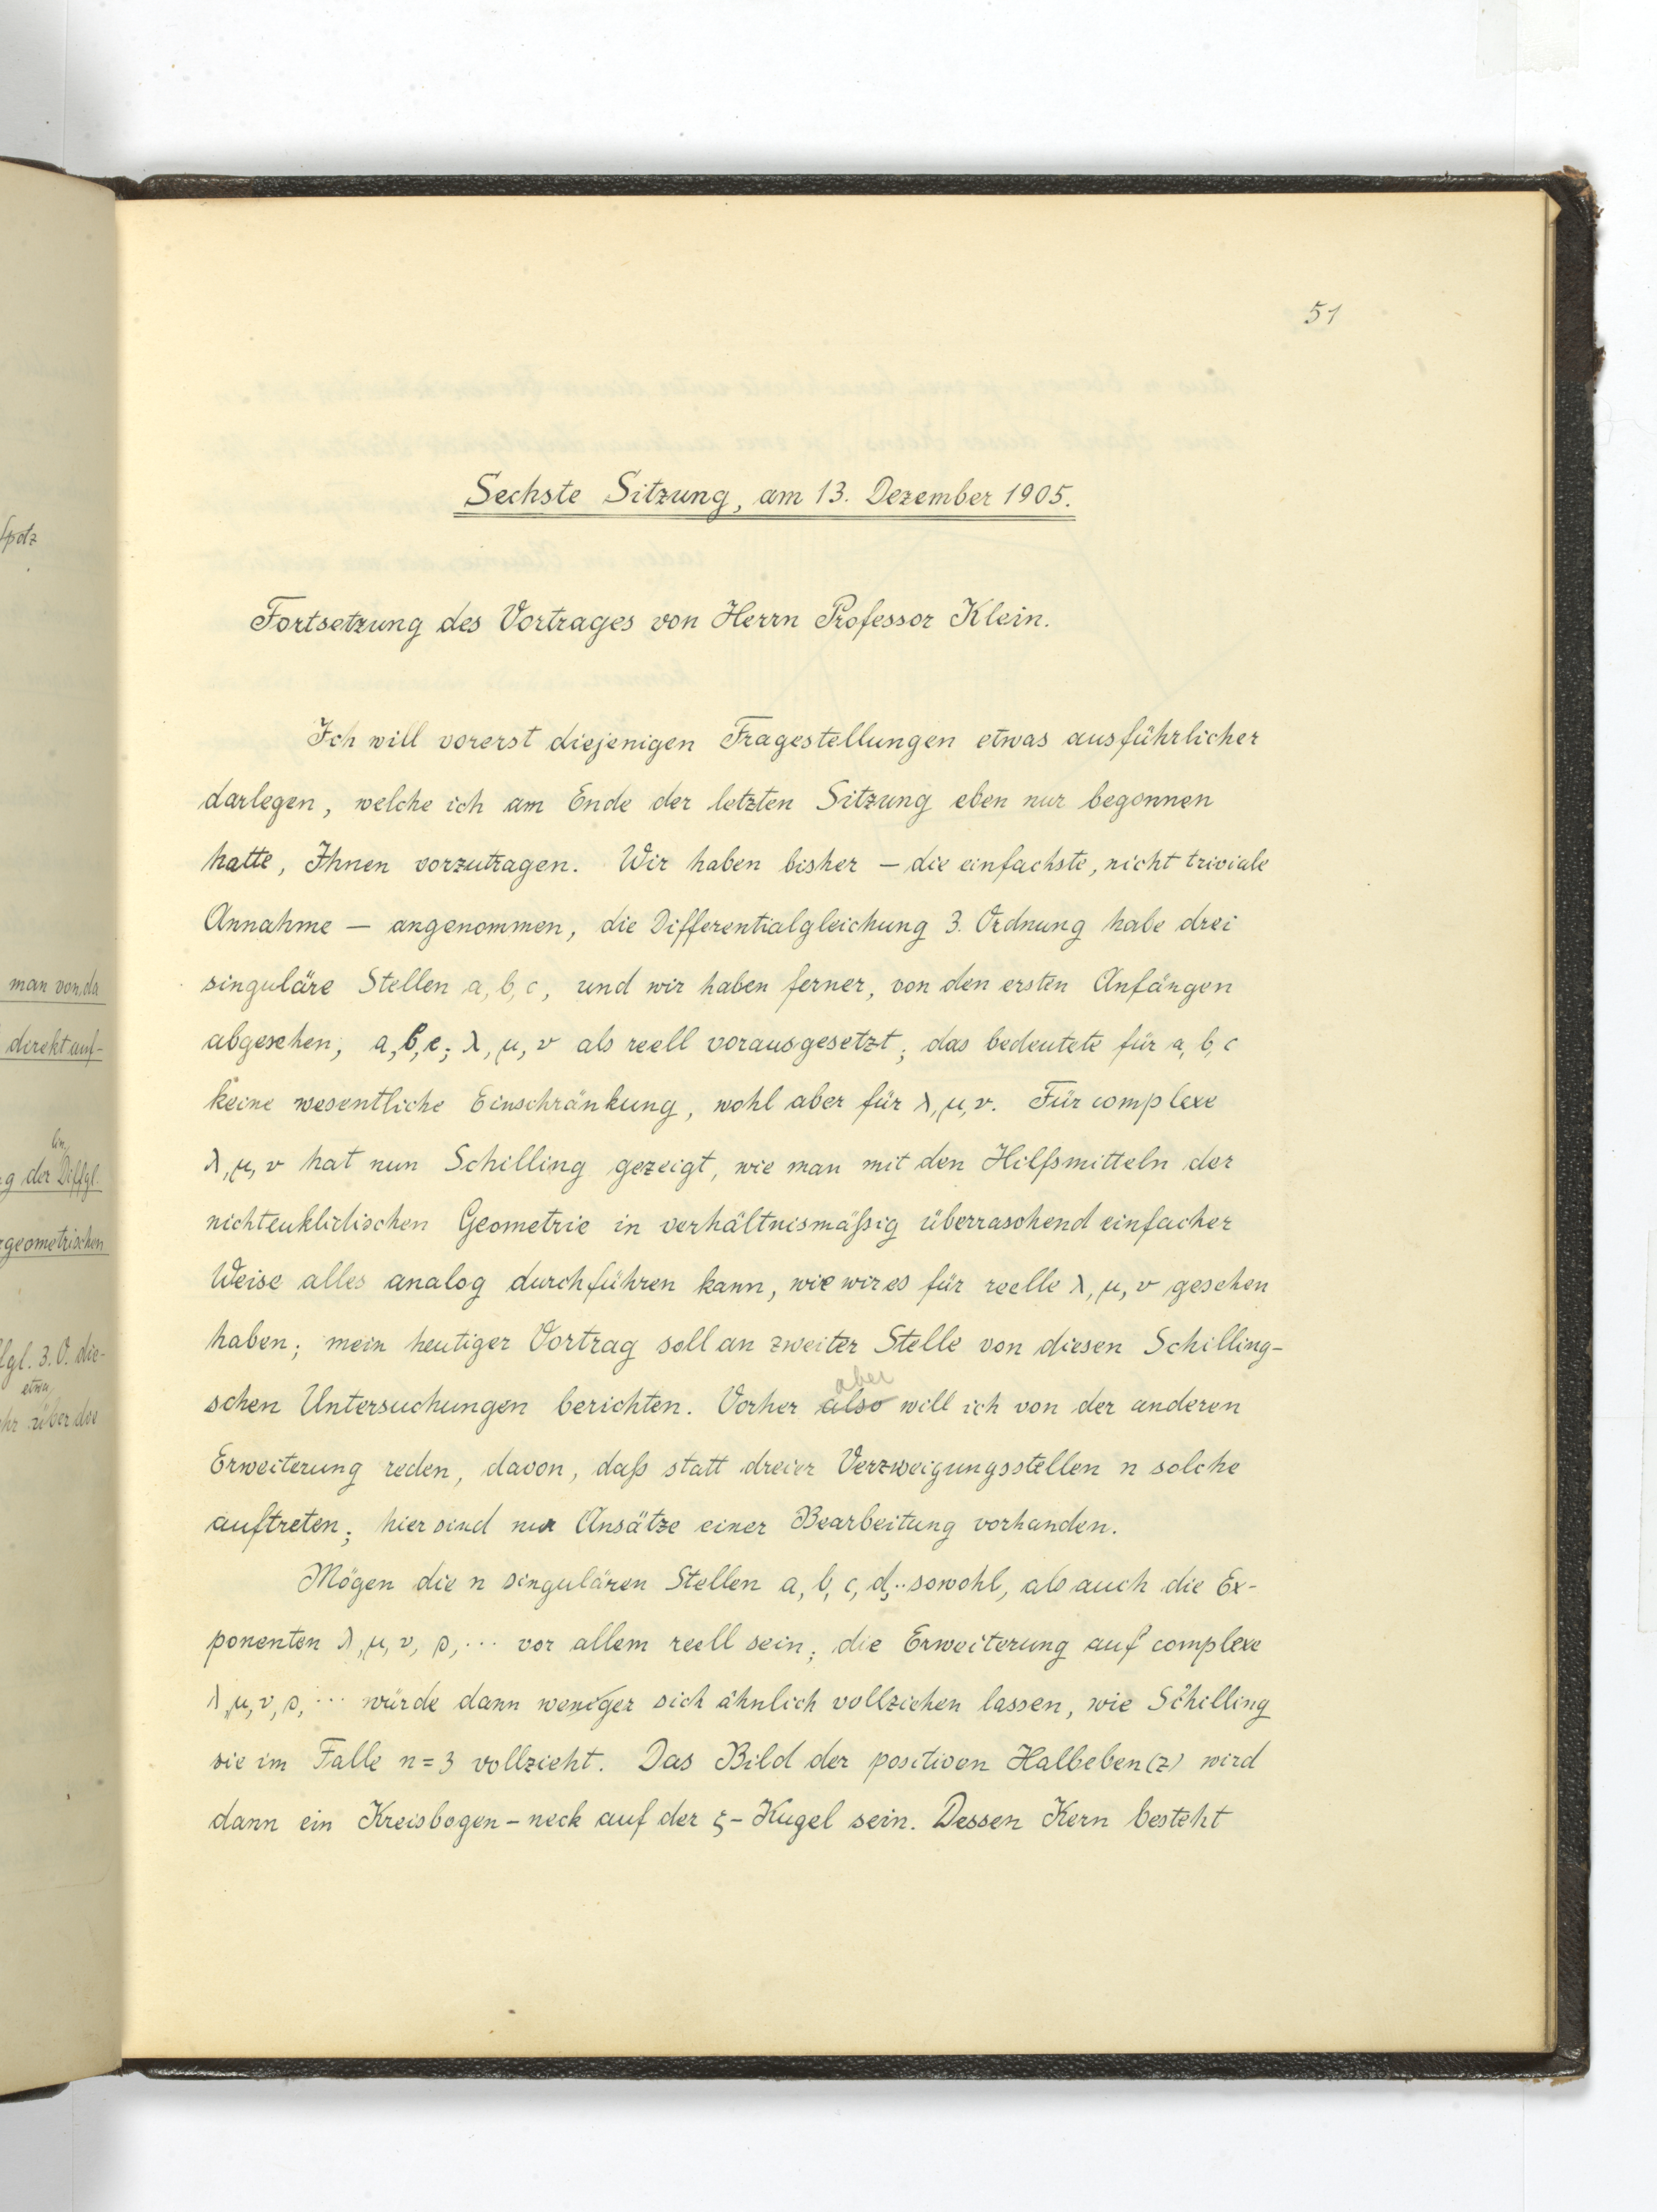 51
Sechste Sitzung, am 13. Dezember 1905.
Fortsetzung des Vortrages von Herrn Professor Klein.
Ich will vorerst diejenigen Fragestellungen etwas ausführlicher
darlegen, welche ich am Ende der letzten Sitzung eben nur begonnen
hatte, Ihnen vorzutragen. Wir haben bisher – die einfachste, nicht triviale
Annahme – angenommen, die Differentialgleichung 3. Ordnung habe drei
singuläre Stellen a, b, c, und wir haben ferner, von den ersten Anfängen
abgesehen, a, b, c; λ, μ, ν als reell vorausgesetzt; das bedeutete für a, b, c
keine wesentliche Einschränkung, wohl aber für λ, μ, ν. Für complexe
λ, μ, ν hat nun Schilling gezeigt, wie man mit den Hilfsmitteln der
nichteuklidischen Geometrie in verhältnismäßig überraschend einfacher
Weise alles analog durchführen kann, wie wir es für reelle λ, μ, ν gesehen
haben; mein heutiger Vortrag soll an zweiter Stelle von diesen Schilling-
schen Untersuchungen berichten. Vorher also aber will ich von der anderen
Erweiterung reden, davon, daß statt dreier Verzweigungsstellen n solche
auftreten; hier sind nur Ansätze einer Bearbeitung vorhanden.
Mögen die n singulären Stellen a, b, c, d,.. sowohl, als auch die Ex-
ponenten λ, μ, ν, ρ, ... vor allem reell sein; die Erweiterung auf complexe
λ, μ, ν, ρ, ... würde dann weniger sich ähnlich vollziehen lassen, wie Schilling
sie im Falle n = 3 vollzieht. Das Bild der positiven Halbeben (z) wird
dann ein Kreisbogen-neck auf der ζ-Kugel sein. Dessen Kern besteht
man von da
direkt auf-
lin.
g der Diffgl.
geometrischen
gl. 3. O. die-
etwa
über die